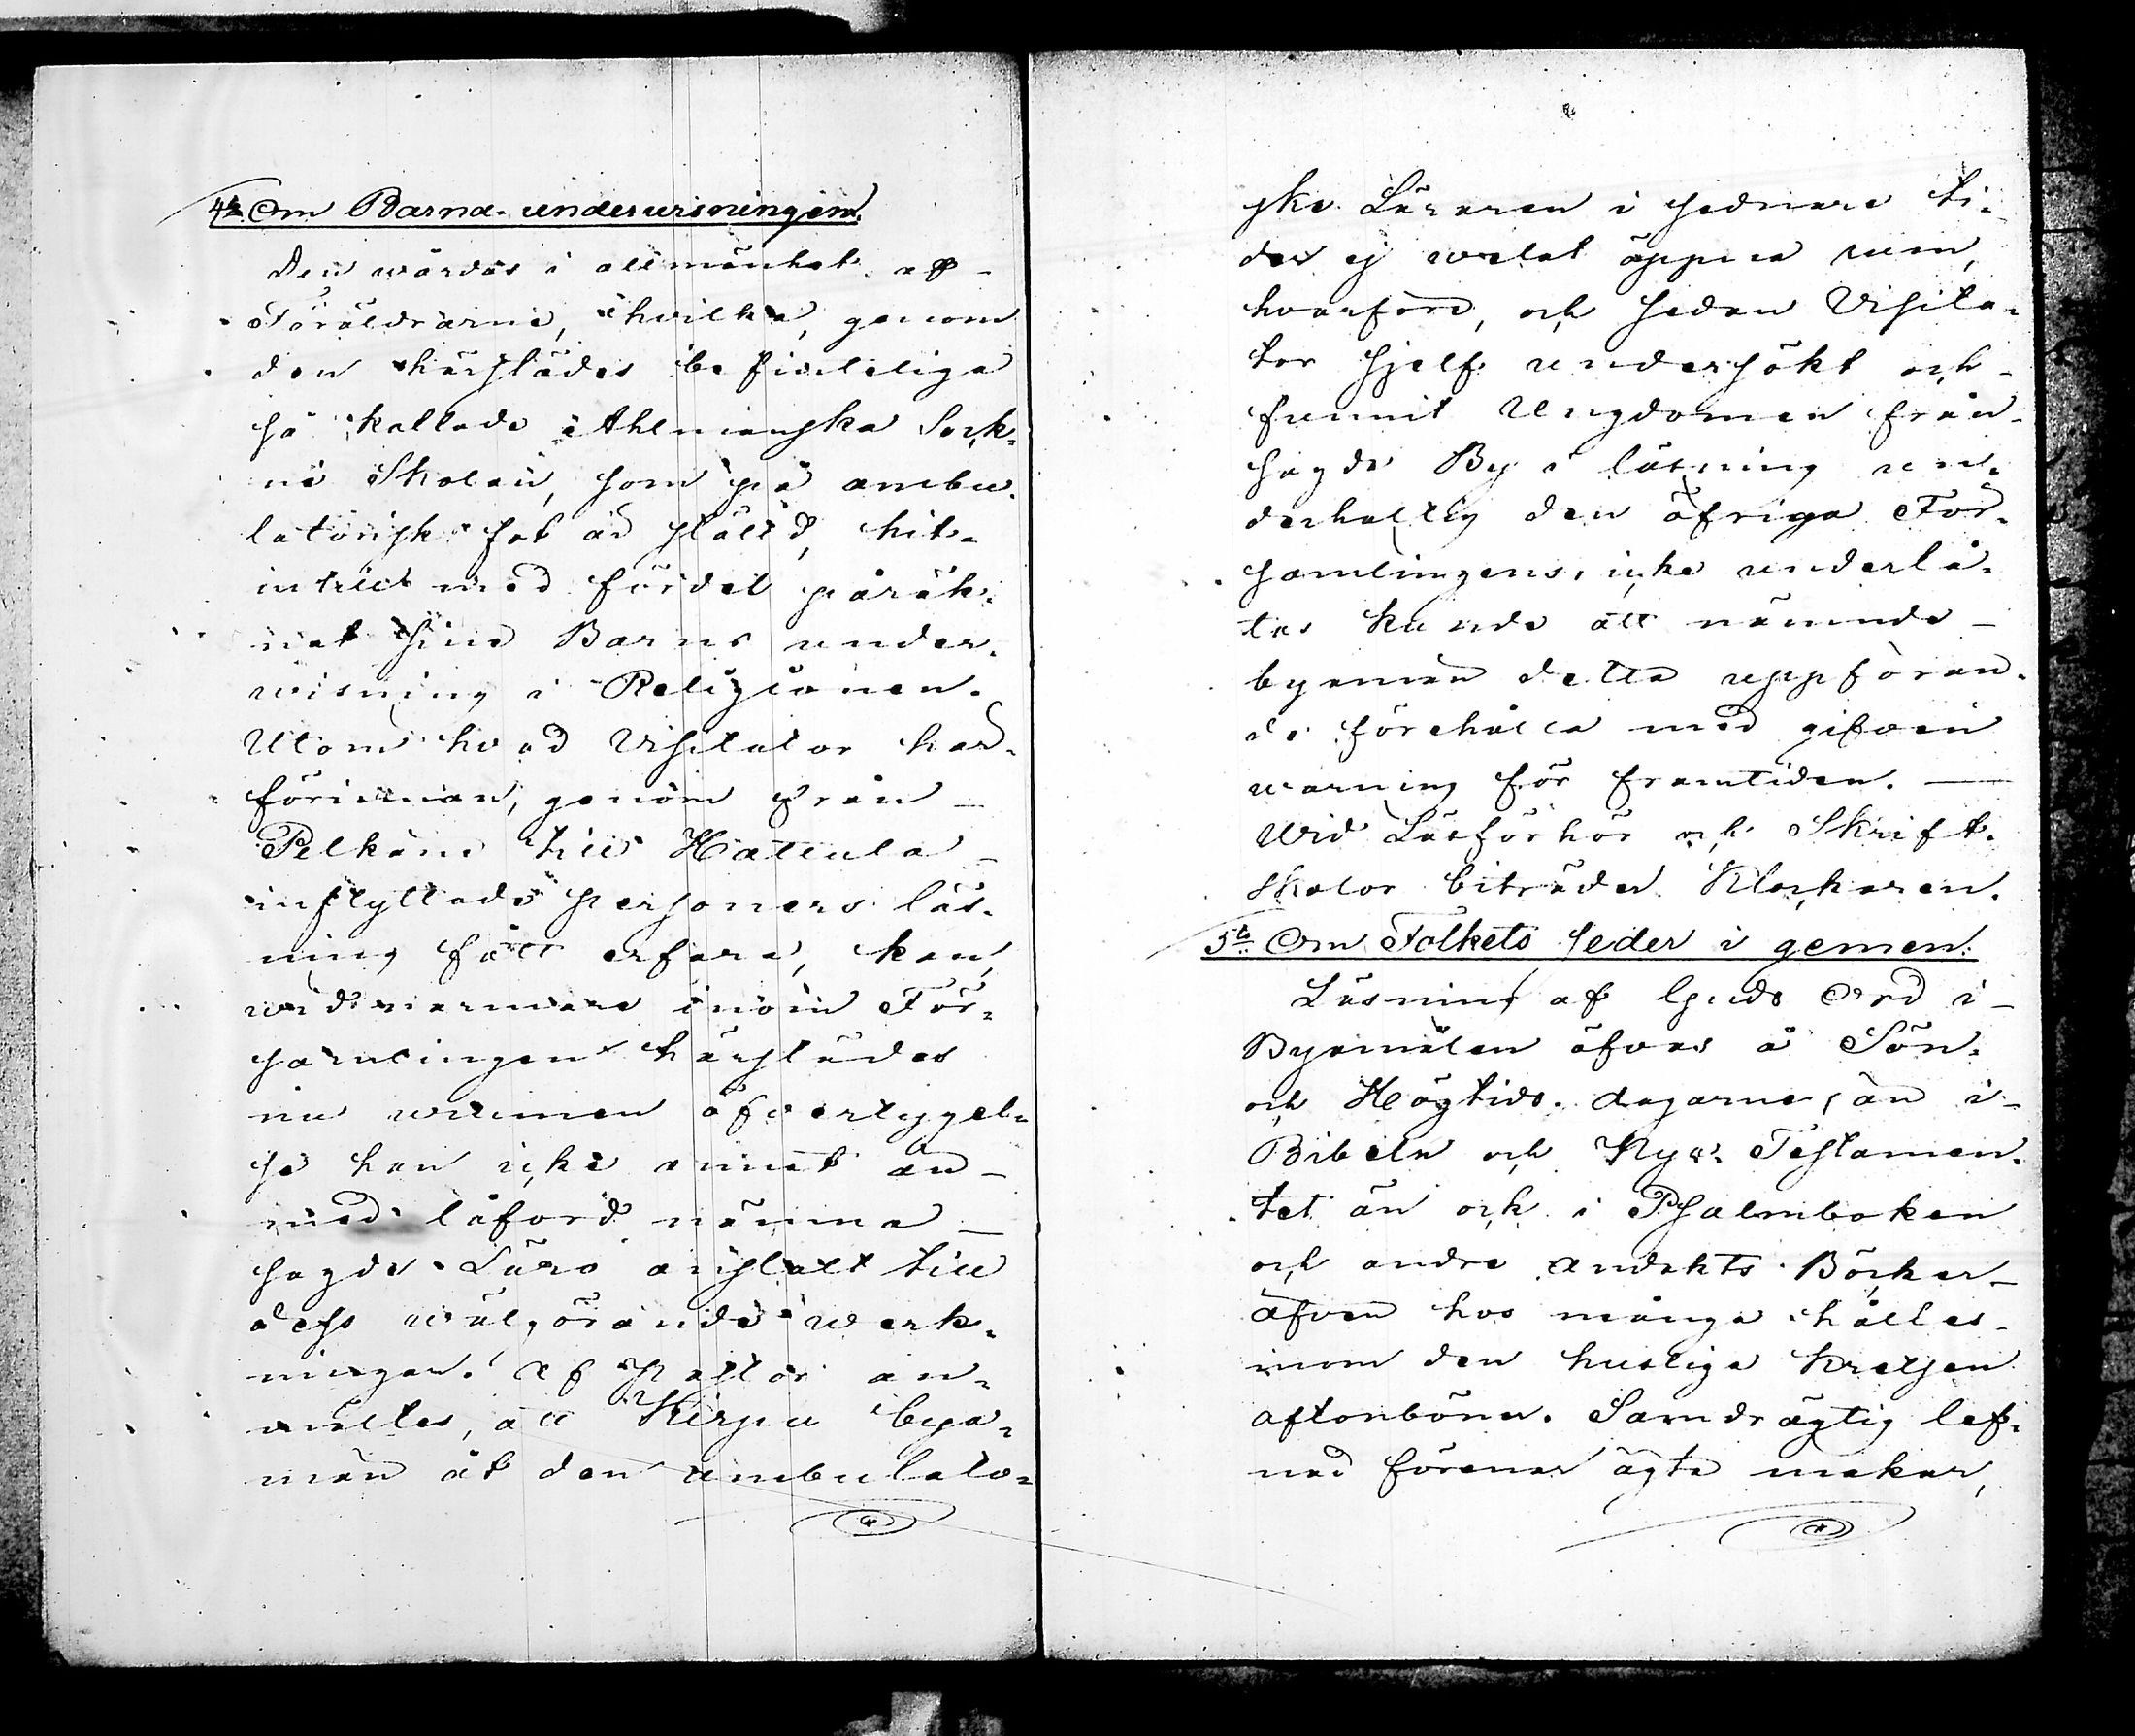 4o. Om Barna-underwisningen.
Den wårdas i allmänhet af
Föräldrarne, hvilka, genom
den härstädes befinteliga
så kallade Ahlmanska Sock-
ne Skolan, som på ambu-
latorisk fot är ställd, hit-
intills med fördel påräk-
nat sine Barns under-
wisning i Religionen.
Utom hvad Visitator har
förinnan, genom från
Pelkäne till Hattula
inflyttade personers läs-
ning fått erfara, kan,
wid närmare inom För-
samlingen härstädes
nu wunnen öfvertygel-
se han icke annat än
med låford nämna
sagde Läro anstalt till
dess wälgörande werk-
ningar. Af Pastor an-
mältes, att Kirpu bya-
män åt den ambulato-
ske Läraren i sednare ti-
der ej welat öppna rum,
hvarföre, och sedan Visita-
tor sjelf undersökt och
funnit Ungdomen från
sagde By i läsning un-
derhaltig den öfriga För-
samlingens, icke underlå-
tas kunde att nämnde
byamän detta uppföran-
de förehålla med gifven
warning för framtiden.
Wid Läsförhör och Skrift-
skolor biträder Klockaren.
5o. Om Folkets seder i gemen.
Läsning af Guds Ord i
Byamålen öfvas å Sön-
och Högtids-dagarne, än i
Bibeln och Nya Testamen-
tet än ock i Psalmboken
och andre andakts Böcker
äfven hos många hålles
inom den husliga kretsen
aftonböner. Samdrägtig lef-
nad förenar ägta makar,